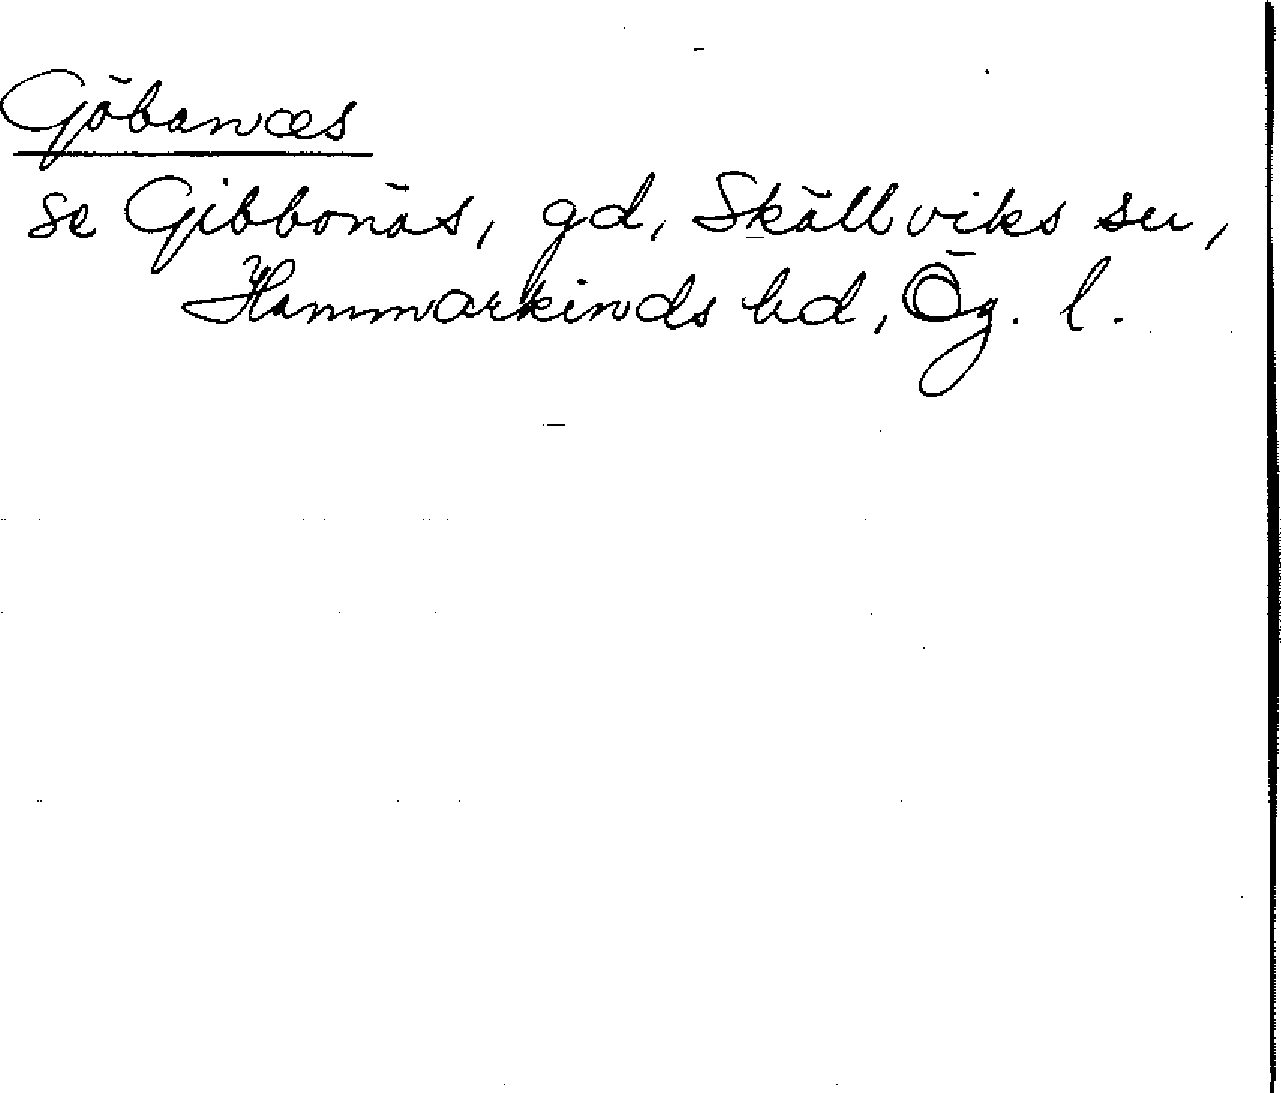 Göbanæs
se Gibbonäs, gd, Skällviks sn,
Hammarkinds hd, Ög. l.